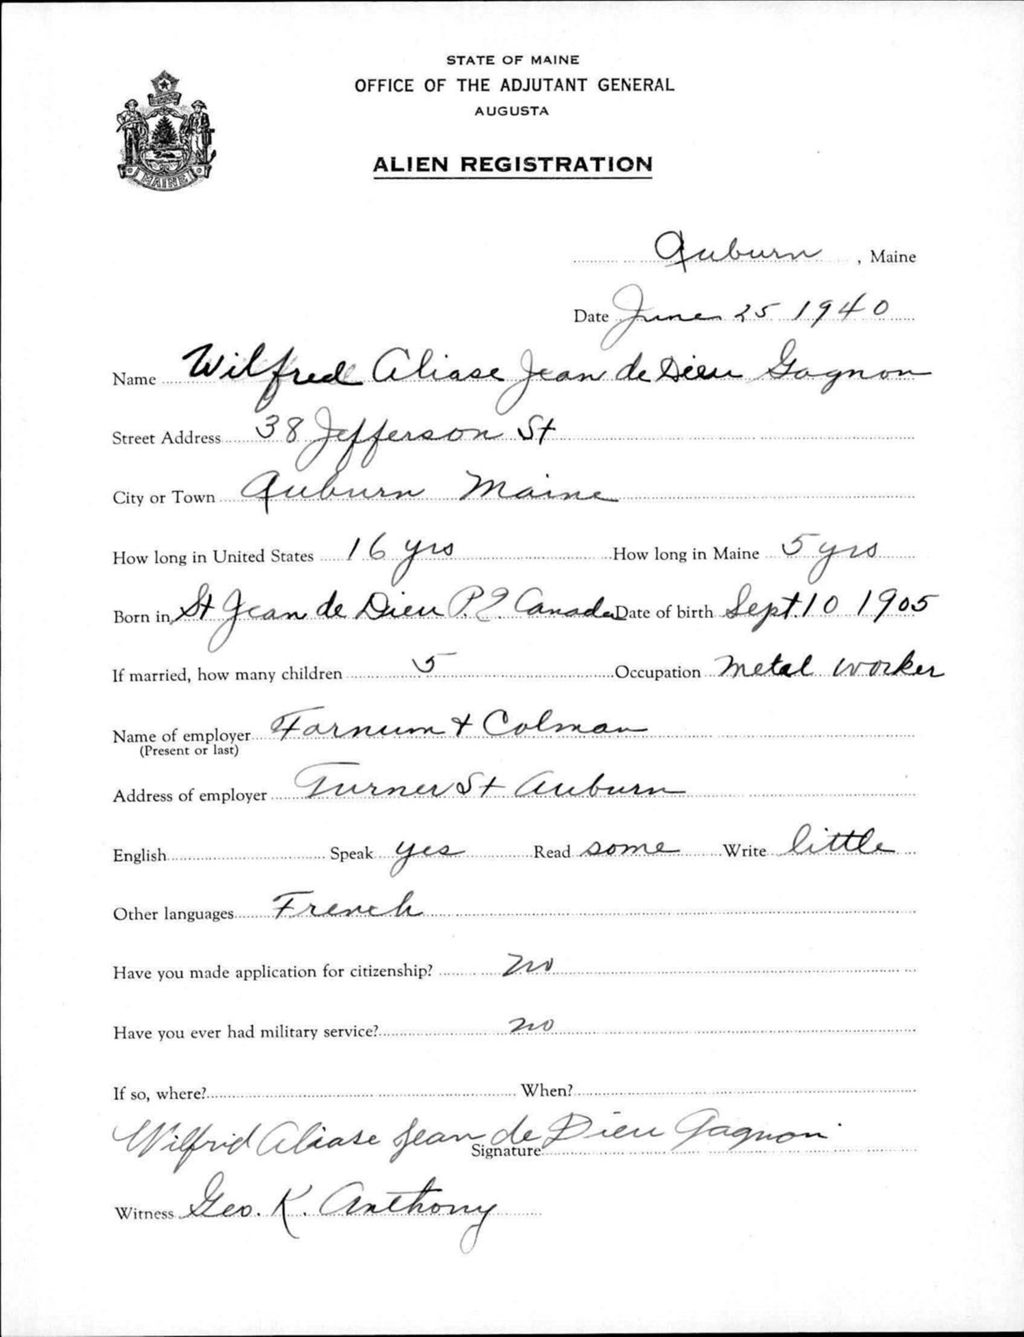 STATE OF MAINE
OFFICE OF THE ADJUTANT GENERAL
AUGUSTA
ALIEN REGISTRATION
MAINE
Auburn, Maine
Date June 25 1940
Name Wilfred Aliase Jean de Dieu Gagnon
Street Address 38 Jefferson St
City or Town Auburn Maine
How long in United States 16 yrs How long in Maine 5 yrs
Born in St Jean de Dieu P.Q Canada Date of birth Sept. 10 1905
If married, how many children 5 Occupation Metal worker
Name of employer Farnum & Colman
(Present or last)
Address of employer Turner St Auburn
English Speak yes Read some Write little
Other languages French
Have you made application for citizenship? no
Have you ever had military service? no
If so, where? When?
Wilfrid Aliase Jean de Dieu Gagnon
Signature
Witness Geo. K. Anthony